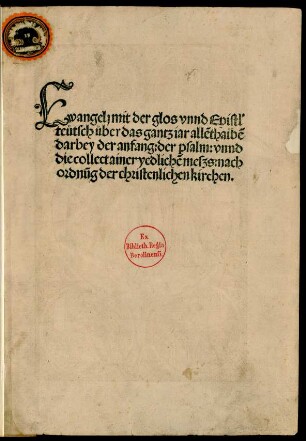 Ewangelj mit der glos vnnd Epistl'
teütsch über das gantz iar allēthalbē
darbey der anfang: der psalm: vnnd
die collect ainer yedlichē mess: nach
ordnūg der christenlichen kirchen.
Ex
Biblioth. Regia
Berolinensi.